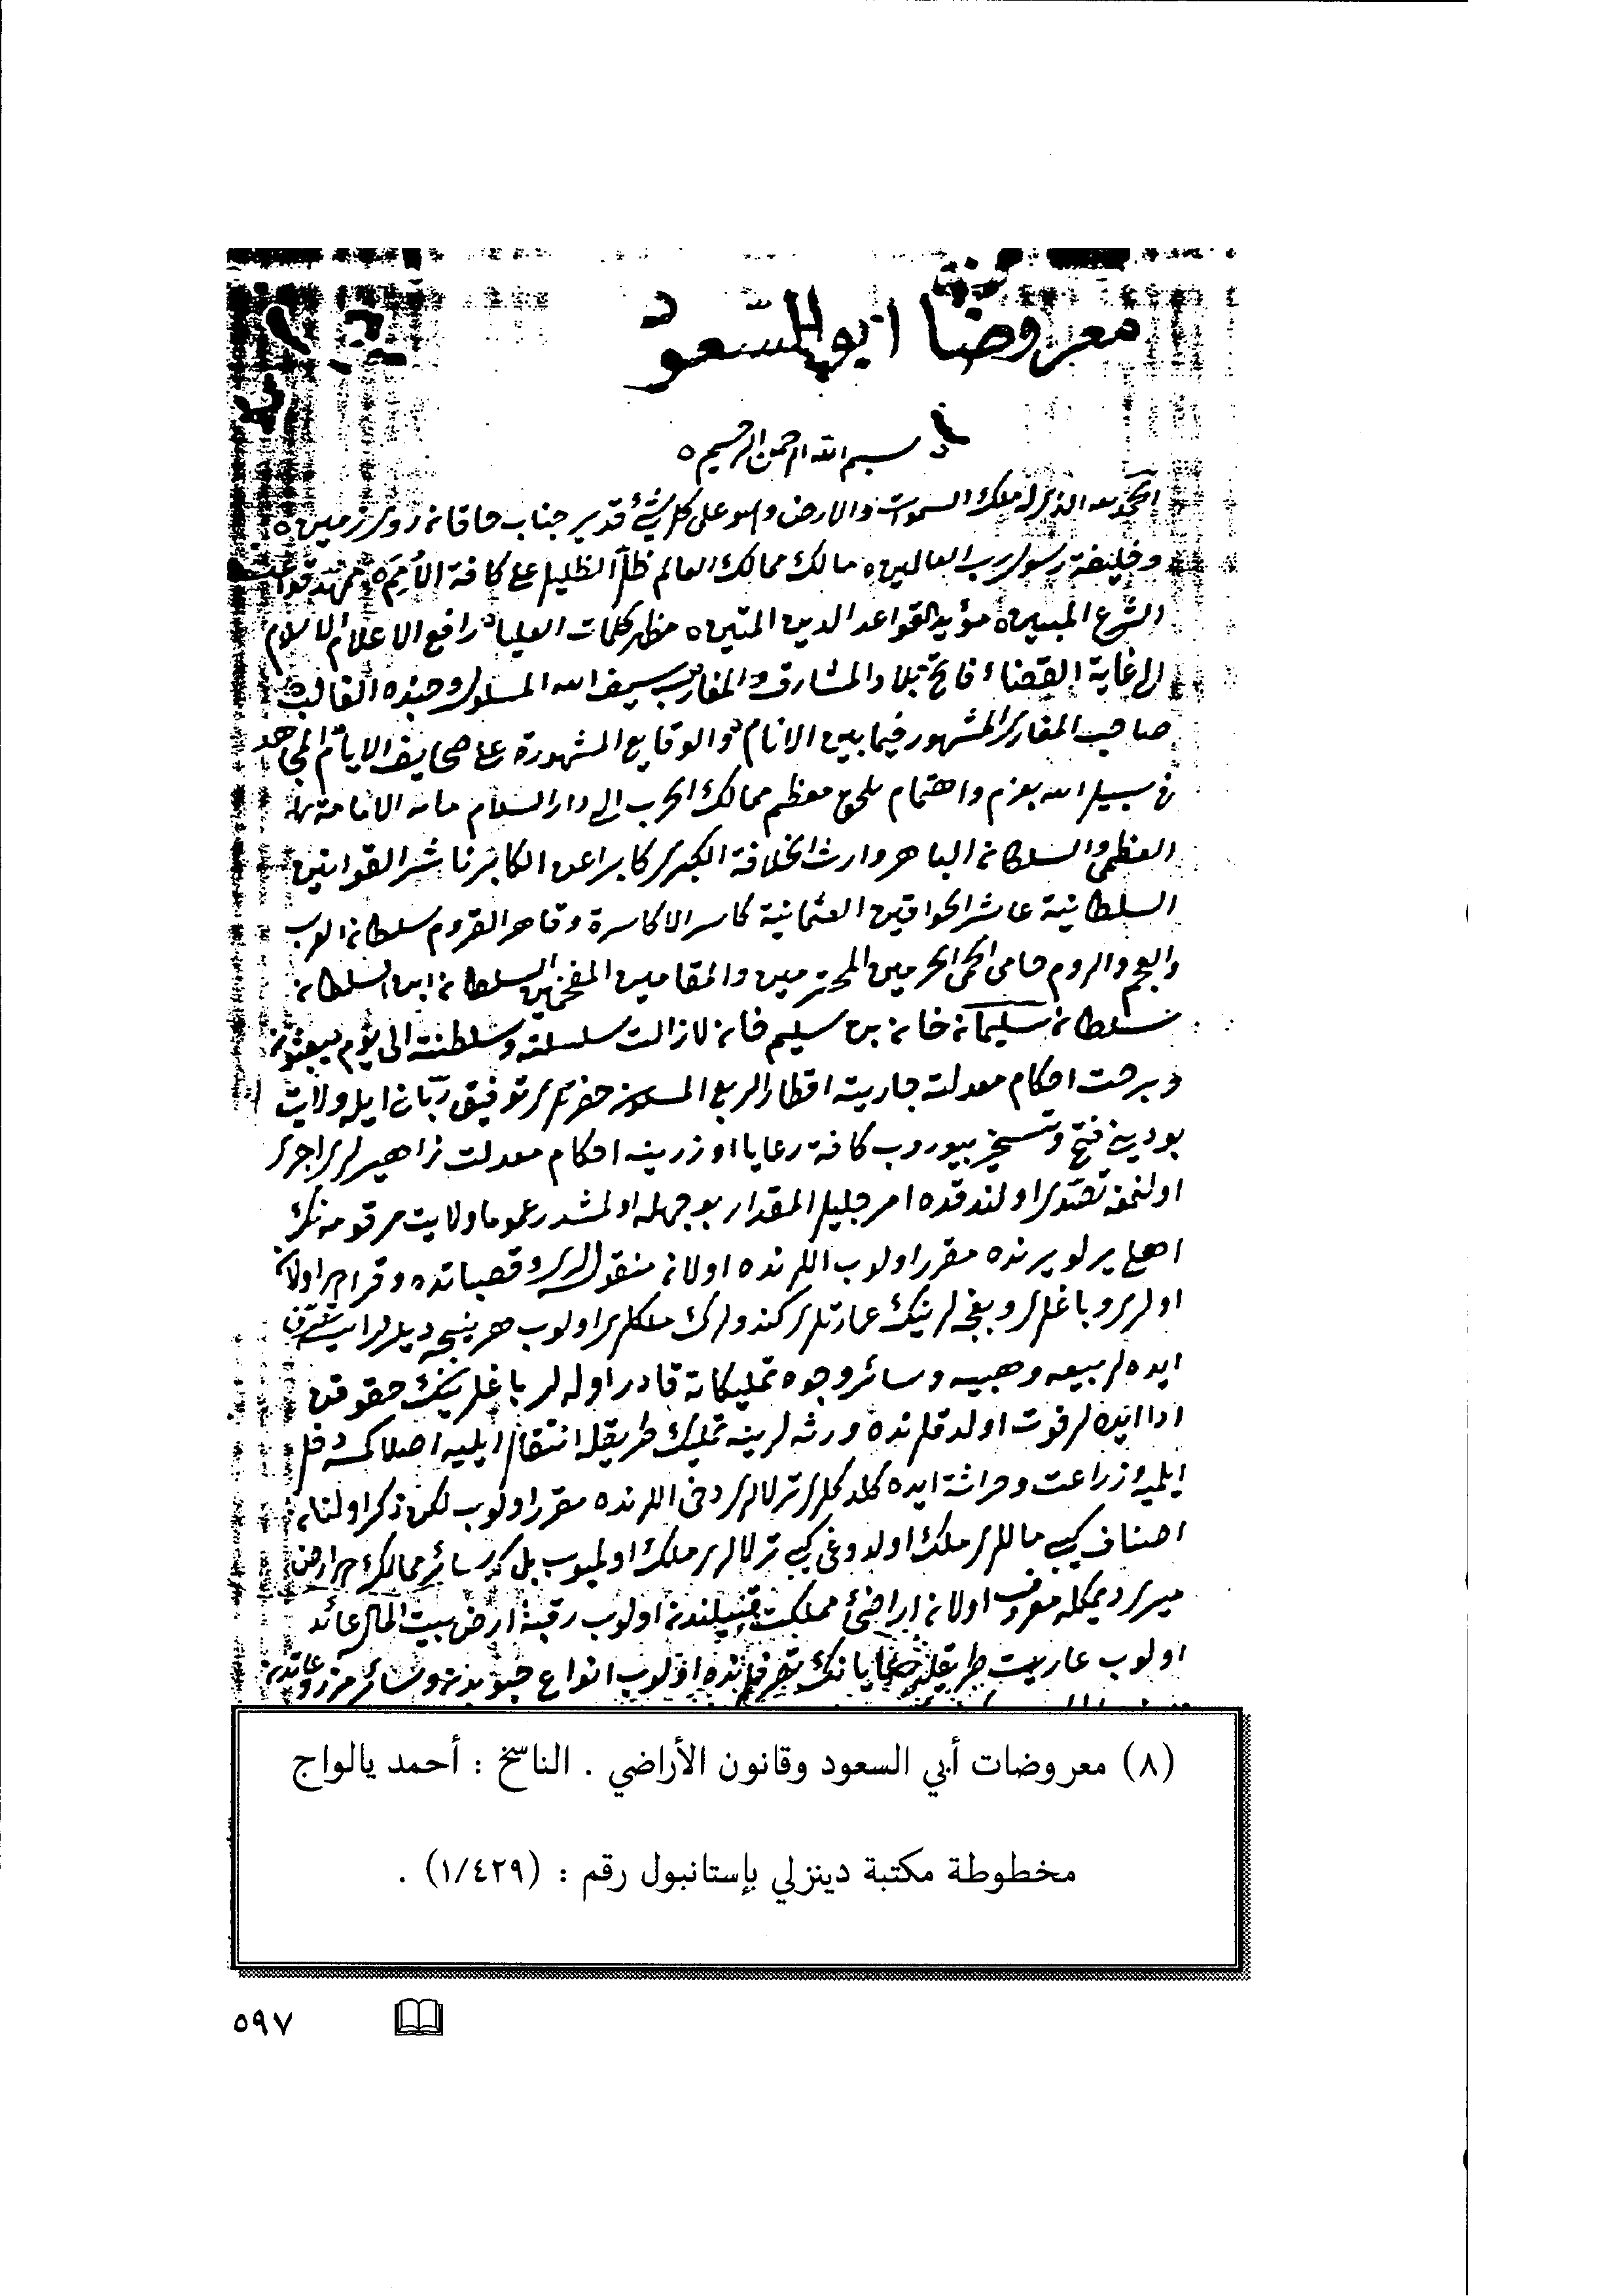 معروضات ابو السعود
بسم الله الرحمن الرحيم
الحمد لله الذي له ملك السموات والارض وهو على كل شئ قدير جناب خاقان روى زمين
وخليفة رسول رب العالمين مالك ممالك العالم ظل الظليل على كافة الأمم ممهد قواعد
الشرع المبين مؤيد القواعد الدين المتين مظهر كلمات العليا رافع الاعلام الاسلام
الى غاية القضاء فاتح بلاد المشارق والمغارب سيف الله المسلول وجنده الغالب
صاحب المغازى المشهور فيما بين الانام والوقايع المشهورة على صحايف الايام المجاهد
فى سبيل الله بعزم واهتمام ملحق معظم ممالك الحرب الى دار السلام الامامة
العظمى والسلطان الباهر وارث الخلافة الكبرى كابرا عن الكابر ناشر القوانين
السلطانية عاشر الخواقين العثمانية كاسر الاكاسرة وقاهر القروم سلطان العرب
والعجم والروم حامى الحمى الحرمين المحترمين والمقامين المفخمين السلطان ابن السلطان
سلطان سليمان خان بن سليم خان لازالت سلسلة وسلطنته الى يوم يبعثون
وبرحت احكام معدلته جارية اقطار الربع المسكون حضرتلرى توفيق ربانى ايله ولايت
بودينى فتح وتسخير بيوروب كافة رعايا اوزرينه احكام معدلت زاهيرلرى اجرا
اولنمغه تصدى اولندقده امر جليل المقدار بو جهله اولمشدر عموما ولايت مرقومه نك
اهلى يرلو يرنده مقرر اولوب اللرنده اولان منقول لرى وقصباتده وقراده اولان
اولرى وباغلرى وبغچه لرينك عمارتلرى كندولرك ملكلرى اولوب هر نيجه ديلرلر ايسه تصرف
ايده لر بيعه وهبيه وسائر وجوه تمليكاته قادر اوله لر باغلرينك حقوقن
ادا ايده لر فوت اولدقلرنده ورثه لرينه تمليك طريقله انتقال ايليه اصلا كمسه دخل
ايلميه زراعت وحراثة ايده كلدكلرى ترلالرى دخى اللرنده مقرر اولوب لكن ذكر اولنان
اصناف كبى ماللرى ملك اولدوغى كبى ترلالرى ملك اولميوب بلكه سائر ممالك ارض
ميرى ديمكله معروف اولان اراضئ مملكت قبيلندن اولوب رقبۀ ارض بيت المال عائد
اولوب عاريت طريقيله رعايانك تصرفلرنده اولوب انواع حبوبدن وسائر مزروعاتدن
(٨) معروضات أبي السعود وقانون الأراضي . الناسخ : أحمد يالواج
مخطوطة مكتبة دينزلي بإستانبول رقم : (١/٤٢٩) .
٥٩٧